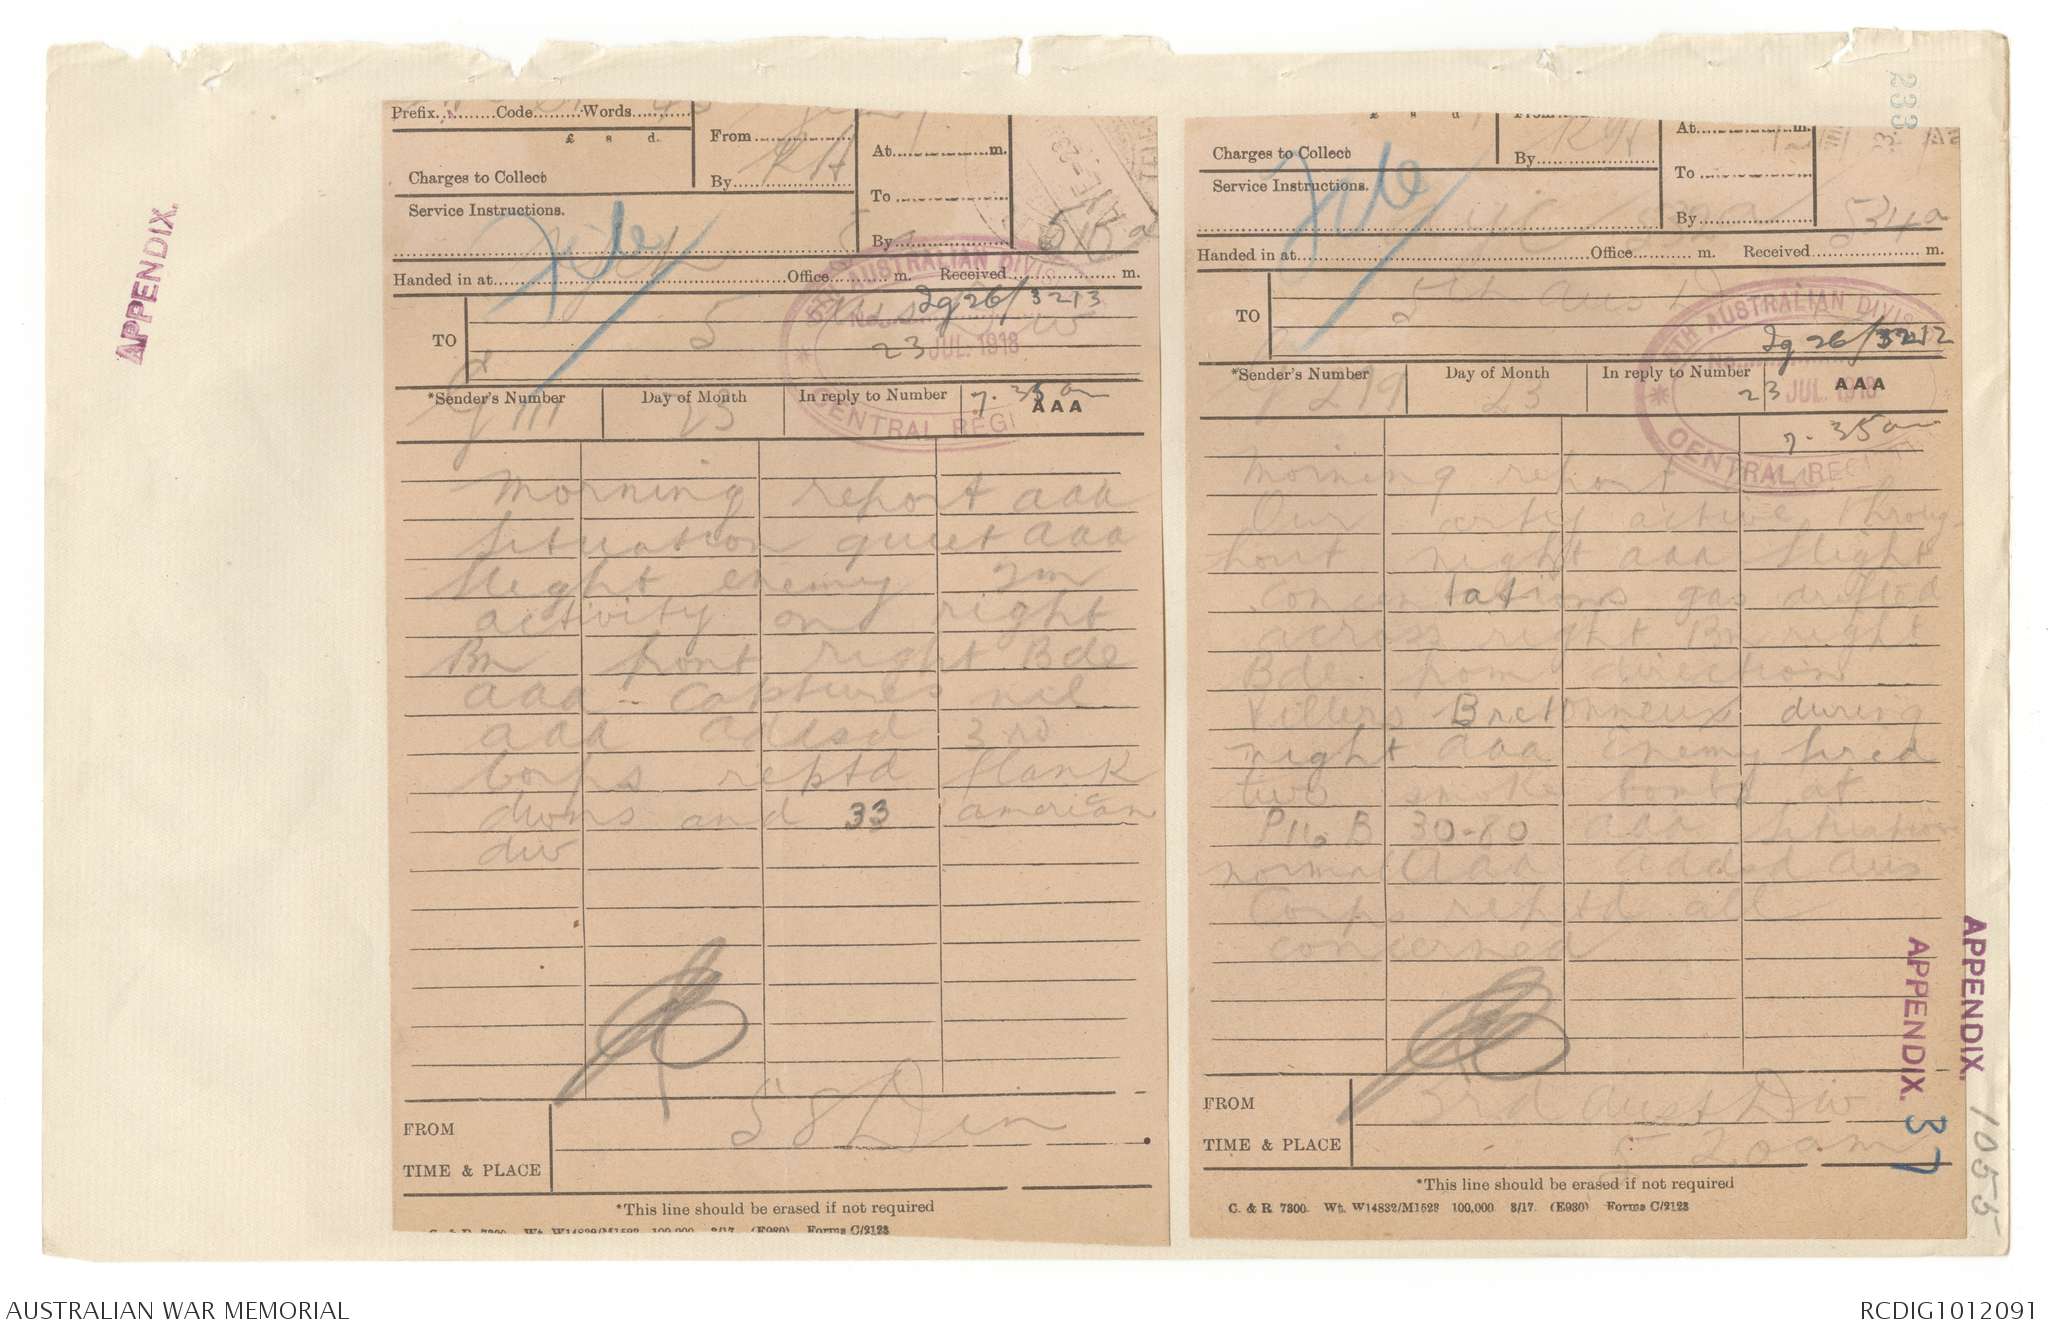 APPENDIX.
Prefix.........Code.........Words
£ s d.
From
By RH
At m.
To
By
Charges to Collect
Service Instructions.
File
515a
Handed in at Office m. Received m.
TO
5 Aus Div
5TH AUSTRALIAN DIVIS
No. Ig 26/3213
23 JUL. 1918
CENTRAL REGI
7.35am
*Sender's Number Day of Month In reply to Number AAA
G 111 23
Morning report aaa
Situation quiet aaa
Slight enemy TM
activity on right
Bn front right Bde
aaa captures nil
aaa addsd 3rd
Corps reptd flank
divns and 33 american
div
FROM 58 Divn
TIME & PLACE
*This line should be erased if not required
C. & R 7300 Wt. W14832/M1523 100,000 3/17. (E930) Forms C/2123
233
£ s d
From
By RH
At m.
To
By
Charges to Collect
Service Instructions.
File
534a
Handed in at Office m. Received m.
TO
5th Aus D
5TH AUSTRALIAN DIVIS
No. Ig 26/3212
23 JUL. 1918
CENTRAL REGI
7.35am
*Sender's Number Day of Month In reply to Number AAA
G 219 23
Morning report aaa
Our arty active Throug
hout night aaa Slight
concentations gas drifted
across right Bn right
Bde from direction
Villers Bretonneux during
night aaa Enemy fired
two smoke bombs at
P11.B 30-80 aaa Situation
normal aaa Addsd Aus
Corps reptd all
concerned
FROM 3rd Aust Div
TIME & PLACE 5 20 am
*This line should be erased if not required
C. & R 7300. Wt. W14832/M1523 100,000 3/17. (E930) Forms C/2123
APPENDIX.
APPENDIX. 37
1055
AUSTRALIAN WAR MEMORIAL
RCDIG1012091